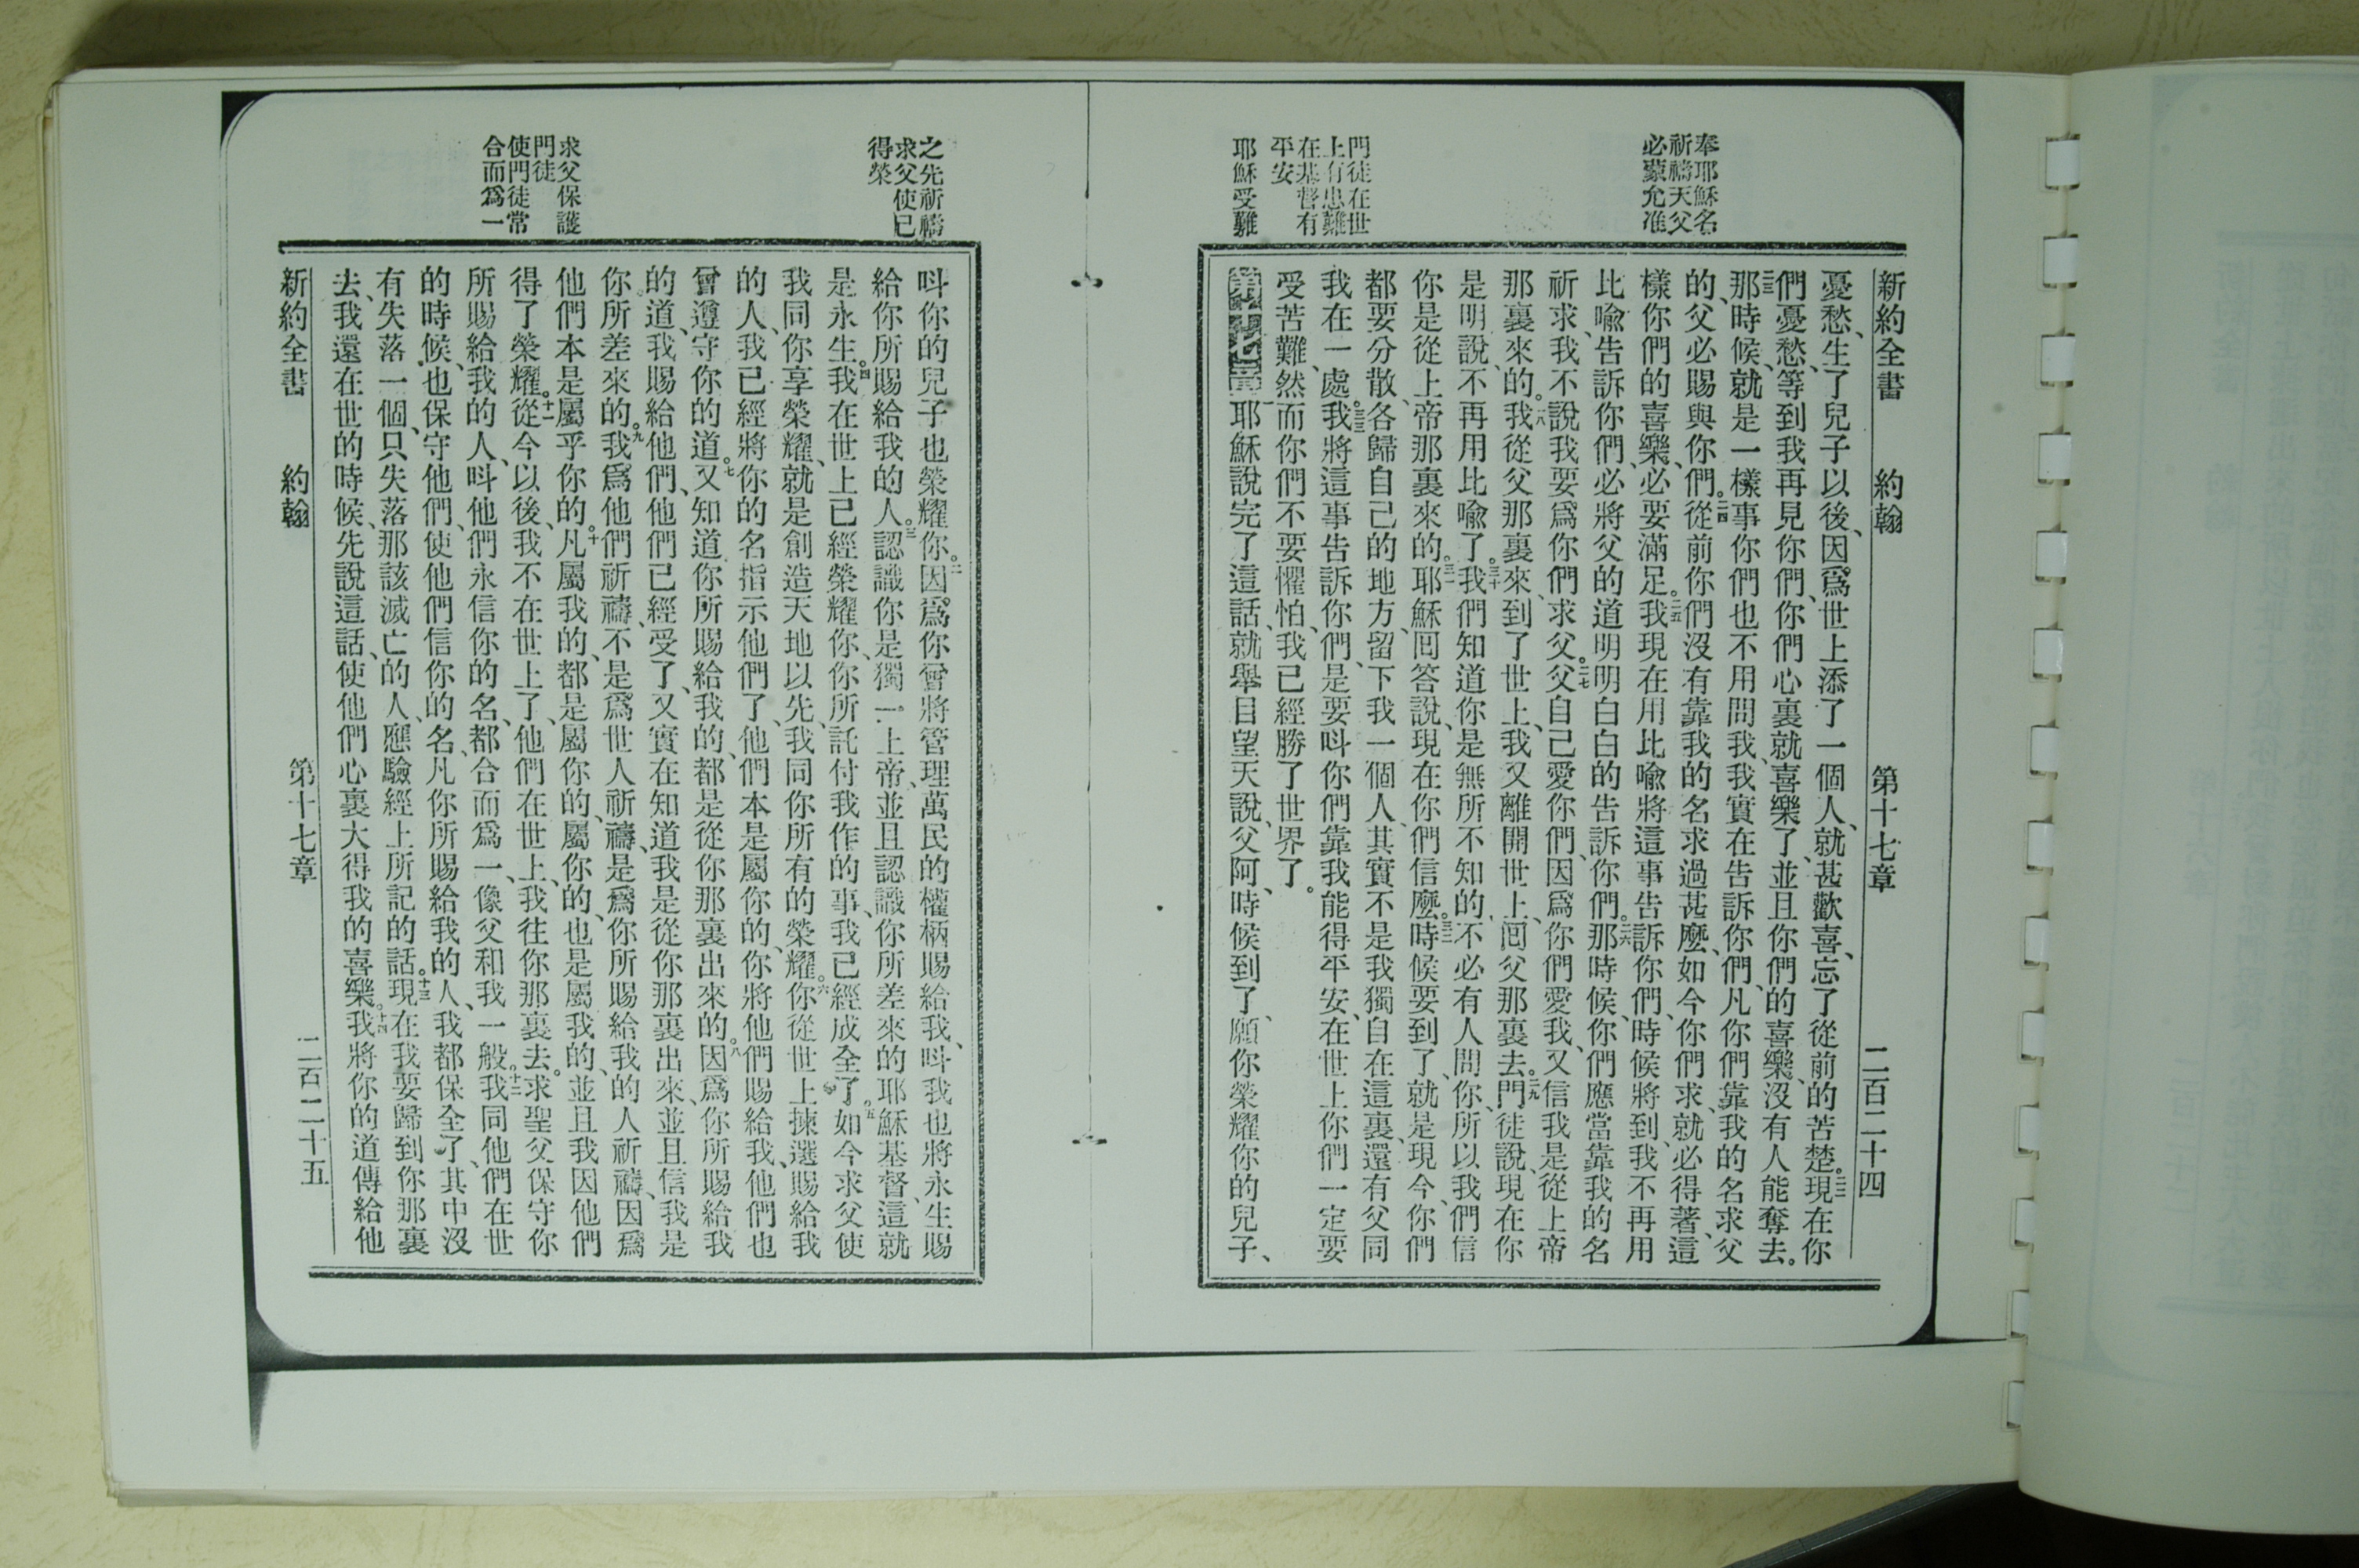 新約全書 約翰 第十七章 二百二十四
奉耶穌名
祈禱天父
必蒙允准
門徒在世
上有患難
在基督有
平安
耶穌受難
憂愁、生了兒子以後、因爲世上添了一個人、就甚歡喜、忘了從前的苦楚。二二現在你
們憂愁、等到我再見你們、你們心裏就喜樂了、並且你們的喜樂、沒有人能奪去。
二三那時候、就是一樣事你們也不用問我、我實在告訴你們、凡你們靠我的名求父
的、父必賜與你們。二四從前你們沒有靠我的名求過甚麽、如今你們求、就必得著、這
樣你們的喜樂、必要滿足。二五我現在用比喩將這事告訴你們、時候將到、我不再用
比喩告訴你們、必將父的道明明白白的告訴你們。二六那時候、你們應當靠我的名
祈求、我不說我要爲你們求父。二七父自己愛你們、因爲你們愛我、又信我是從上帝
那裏來的。二八我從父那裏來、到了世上、我又離開世上、囘父那裏去。二九門徒說、現在你
是明說、不再用比喩了。三十我們知道你是無所不知的、不必有人問你、所以我們信
你是從上帝那裏來的。三一耶穌囘答說、現在你們信麽。三二時候要到了、就是現今、你們
都要分散、各歸自己的地方、留下我一個人、其實不是我獨自在這裏、還有父同
我在一處。三三我將這事告訴你們、是要呌你們靠我能得平安、在世上你們一定要
受苦難、然而你們不要懼怕、我已經勝了世界了。
第十七章一耶穌說完了這話、就舉目望天說、父阿、時候到了、願你榮耀你的兒子、
之先祈禱
求父使已
得榮
求父保護
門徒
使門徒常
合而爲一
呌你的兒子也榮耀你。二因爲你曾將管理萬民的權柄賜給我、呌我也將永生賜
給你所賜給我的人。三認識你是獨一上帝、並且認識你所差來的耶穌基督、這就
是永生。四我在世上已經榮耀你、你所託付我作的事、我已經成全了。五如今求父使
我同你享榮耀、就是創造天地以先、我同你所有的榮耀。六你從世上揀選賜給我
的人、我已經將你的名指示他們了、他們本是屬你的、你將他們賜給我、他們也
曾遵守你的道。七又知道你所賜給我的、都是從你那裏出來的。八因爲你所賜給我
的道、我賜給他們、他們已經受了、又實在知道我是從你那裏出來、並且信我是
你所差來的。九我爲他們祈禱、不是爲世人祈禱、是爲你所賜給我的人祈禱、因爲
他們本是屬乎你的。十凡屬我的、都是屬你的、屬你的、也是屬我的、並且我因他們
得了榮耀。十一從今以後、我不在世上了、他們在世上、我往你那裏去。求聖父保守你
所賜給我的人、呌他們永信你的名、都合而爲一、像父和我一般。十二我同他們在世
的時候、也保守他們、使他們信你的名、凡你所賜給我的人、我都保全了、其中沒
有失落一個、只失落那該滅亡的人、應驗經上所記的話。十三現在我要歸到你那裏
去、我還在世的時候、先說這話、使他們心裏大得我的喜樂。十四我將你的道傳給他
新約全書 約翰 第十七章 二百二十五